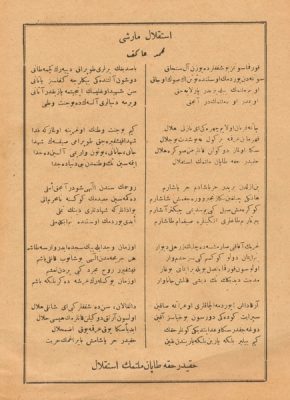 استقلال مارشی
محمد عاكف
قورقما سونمز بو شفقلرده یوزن آل سنجاق
سونمه‌دن یوردمك اوستنده توتن اك صوك اوجاق
او بنم ملتمك ییلدیزیدر پارلایه‌جق
او بنمدر او بنم ملتمكدر آنجق
چاتما قربان اولایم چهره‌كی ای نازلی هلال
قهرمان عرقمه بر كول نه بو شدت بو جلال
سكا اولماز دوكولن قانلرمز صوكره حلال
حقیدر حقه طاپان ملتمك استقلال
بن ازلدن بریدر حر یاشادم حر یاشارم
هانكی چیلغین بكا زنجیر اوره‌جقمش شاشارم
كوكره‌مش سیل كبی‌یم بندیمی چیكنر آشارم
ییرتارم طاغلری انكینلره صیغمام طاشارم
غربك آفاقنی صارمشسه چلیك زرهلی دیوار
بنم ایمان دولو كوكسم كبی سرحدم وار
اولوسون قورقما ناصل بویله بر ایمانی بوغار
مدنیت دیدیكك تك دیشی قالمش جاناوار
آرقاداش یوردمه آلچاقلری اوغراتما صاقین
سپر ایت كوده‌كی دورسون بو حیاسزجه آقین
دوغه‌جقدر سكا وعد ایتدیكی كونلر حقك
كیم بیلیر بلكه یارین بلكه یاریندن ده یاقین
باصدیغك یرلری طوپراق دییه‌رك كچمه طانی
دوشون آلتنده‌كی بیكلرجه كفنسز یاتانی
سن شهید اوغلیسك اینجیتمه یازیقدر آتاكی
ویرمه دنیالری آلسه‌ك ده بو جنت وطنی
كیم بو جنت وطنك اوغرینه اولماز كه فدا
شهدا فیشقیره‌جق طوپراغی صیقسه‌ك شهدا
جانی جانانی بوتون واریمی آلسین ده خدا
ایتمه‌سین تك وطنمدن بنی دنیاده جدا
روحمك سندن الهی شودر آنجق املی
دكمه‌سین معبدمك كوكسنه نامحرم الی
بو اذانلر كه شهادتلری دینك تملی
ابدی یوردمك اوستنده بنم ایكله‌ملی
او زمان وجد ایله بیك سجده ایدر وارسه طاشم
هر جریحه‌مدن الهی بوشانوب قانلی یاشم
فیشقیرر روح مجرد كبی یردن نعشم
او زمان یوكسله‌رك عرشه دكر بلكه باشم
دالغالان سن ده شفقلر كبی ای شانلی هلال
اولسون آرتق دوكولن قانلرمك هپسی حلال
ابدیا سكا یوق عرقمه یوق اضمحلال
حقیدر حر یاشامش بایراغمك حریت
حقیدر حقه طاپان ملتمك استقلال